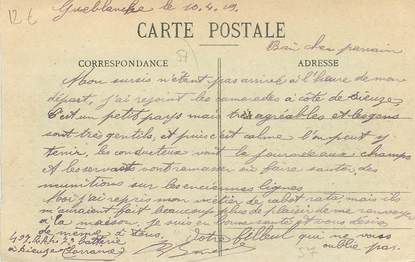 12 €
Guéblange le 10.4.19.
CARTE POSTALE
Bien cher parrain
CORRESPONDANCE
ADRESSE
Mon sursis n'étant pas arrivé à l'heure de mon
départ, j'ai rejoint les camarades à côté de Dieuze
C'est un petit pays mais très agréables et les gens
sont très gentils, et puis c'est calme l'on peut y
tenir, les conducteurs vont la journée aux champs
et les servants vont ramasser ou faire sauter des
munitions sur les anciennes lignes
Moi j'ai repris mon métier de rabot raté, mais ils
m'auraient fait beaucoup plus de plaisir de me renvoyer
à la maison je suis en
de même à tous. Votre filleul qui ne vous
oublie pas.
batterie
à Dieuze Lorraine